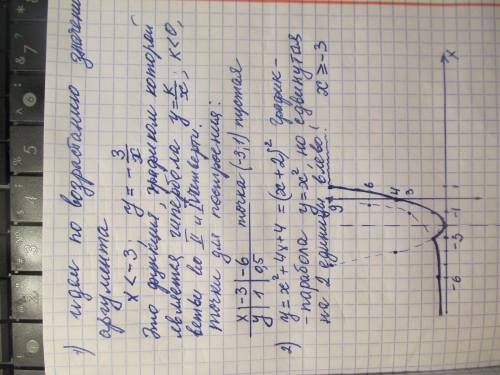 1) идем по возрастанию значений
аргумента
x < -3; y = -3/x
Это функция, графиком которой
является гипербола y = k/x; k<0,
ветви во II и IV четверти.
точки для построения:
x | -3 | -6
y | 1 | 0,5
точка (-3,1) пустая
2) y = x² + 4x + 4 = (x+2)² график -
- парабола y = x², но сдвинутая
на 2 единицы влево, x ≥ -3
9
6
4
3
-1
-3
-6
x